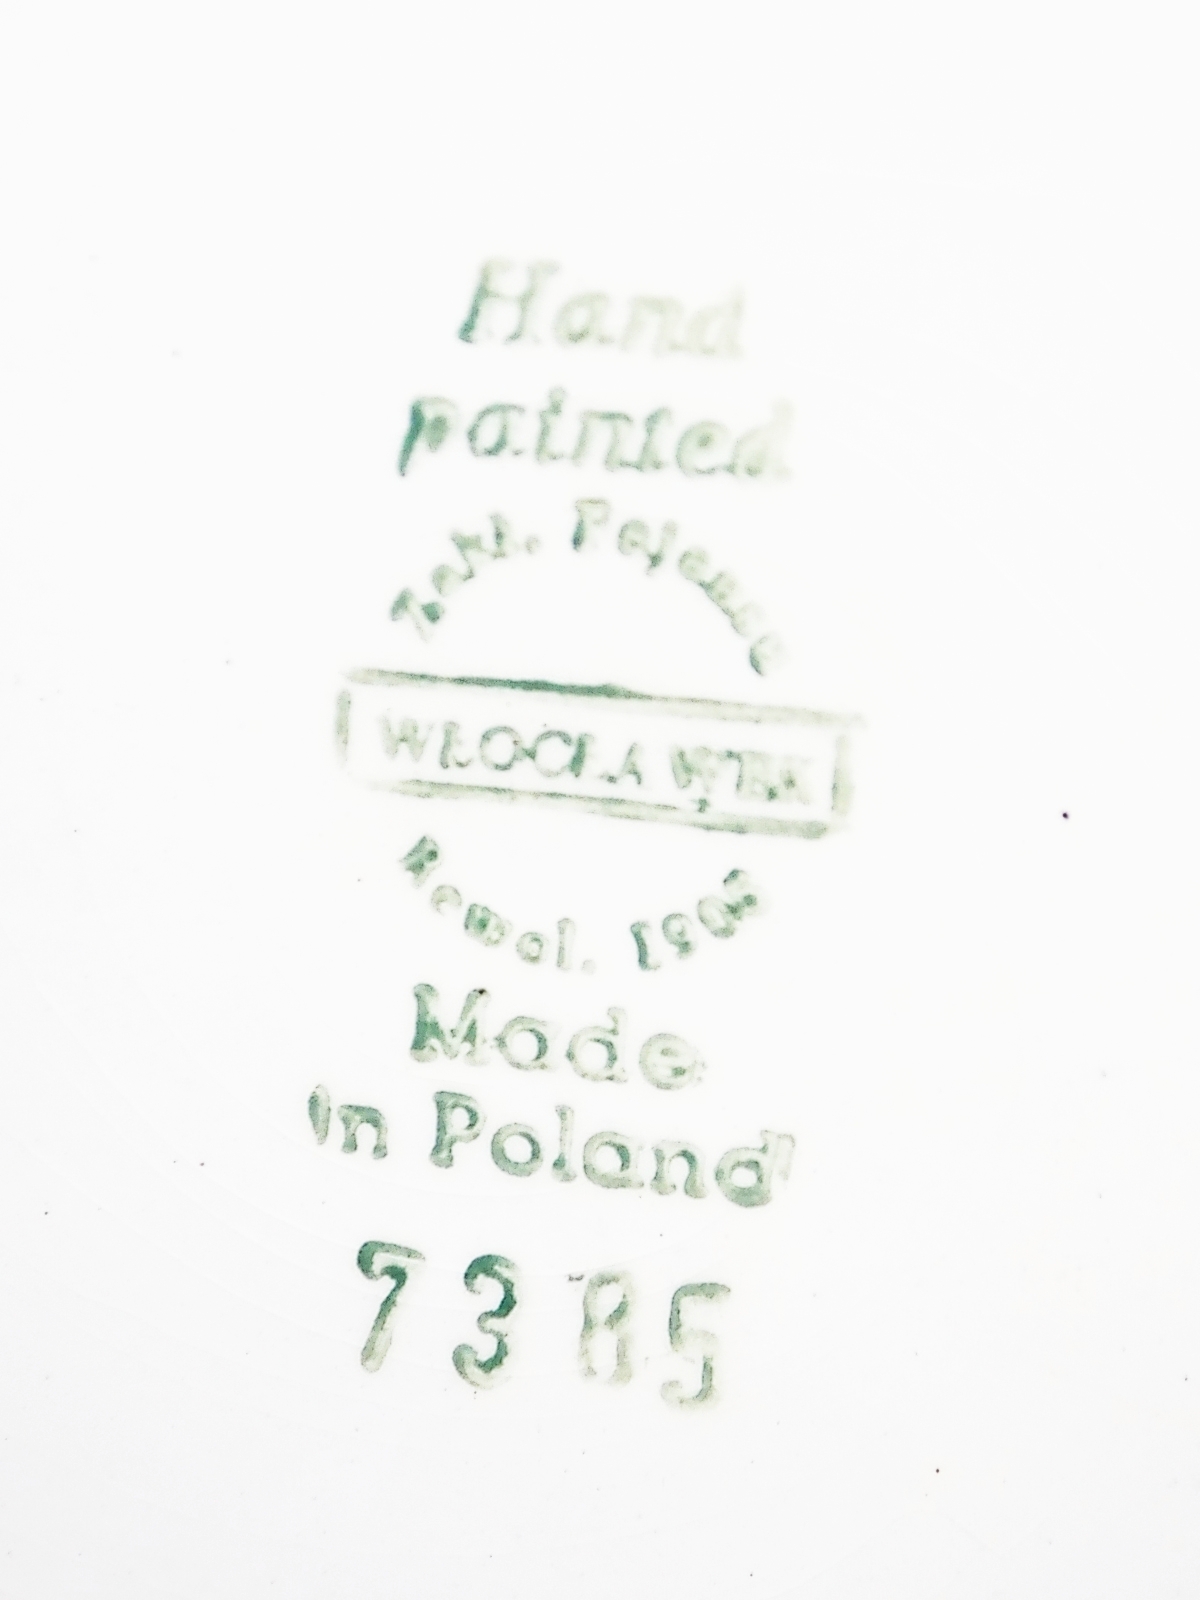 Hand
painted
Zakł. Fajansu
WŁOCŁAWEK
Rewol. 1905
Made
in Poland
7385